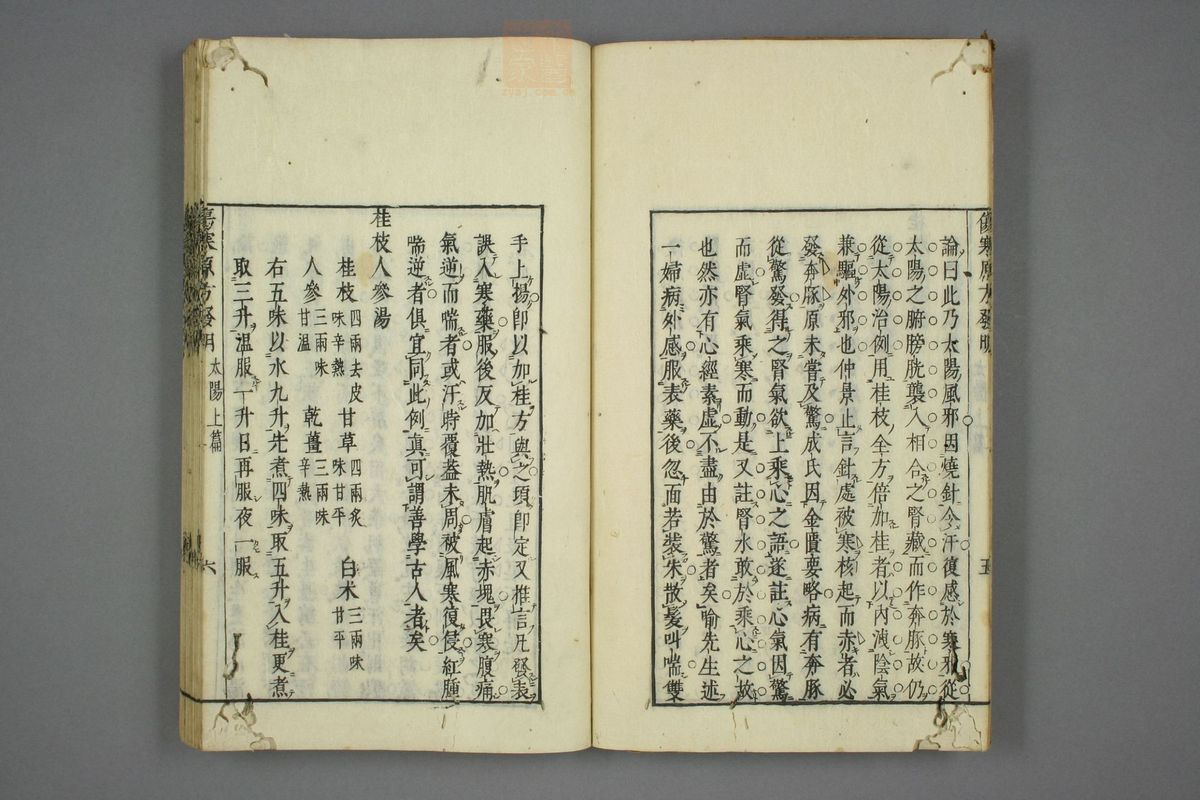 傷寒原方發明
五
論曰此乃太陽風邪因燒針令汗復感於寒邪從
太陽之腑膀胱襲入相合之腎藏而作奔豚故仍
從太陽治例用桂枝全方倍加桂者以內洩陰氣
兼驅外邪也仲景止言針處被寒核起而赤者必
發奔豚原未嘗及驚成氏因金匱要略病有奔豚
從驚發得之腎氣欲上乘心之語遂註心氣因驚
而虛腎氣乘寒而動是又註腎水敢於乘心之故
也然亦有心經素虛不盡由於驚者矣喻先生述
一婦病外感服表藥後忽面若裝朱散髮叫喘雙
手上揚卽以加桂方與之頃卽定又推言凡發表
誤入寒藥服後反加壯熱肌膚起赤塊畏寒腹痛
氣逆而喘者或汗時覆蓋未周被風寒復侵紅腫
喘逆者俱宜同此例眞可謂善學古人者矣
桂枝人參湯
桂枝 四兩去皮 味辛熱 甘草 四兩炙 味甘平 白朮 三兩味 甘平
人參 三兩味 甘溫 乾薑 三兩味 辛熱
右五味以水九升先煮四味取五升入桂更煮
取三升溫服一升日再服夜一服
傷寒原方發明 太陽上篇 六